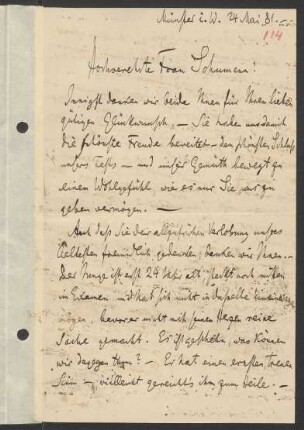 Münster i. W. 24 Mai 81.
114
Hochverehrte Frau Schumann!
Innigst danken wir beide Ihnen für Ihren lieben
gütigen Glückwunsch, — Sie haben uns damit
die schönste Freude bereitet — den schönsten Schluß
unsres Festes — und unser Gemüth bewegt zu
einem Wohlgefühl, wie es nur Sie uns zu
geben vermögen. —
Auch daß Sie der allzufrühen Verlobung unsres
Aeltesten freundlich gedenken, danken wir Ihnen. —
Der Junge ist erst 24 Jahr alt, steckt noch mitten
in Examen und hat sich nicht
mögen, bevor er nicht mit seinem Herzen reine
Sache gemacht. Es ist geschehn, was können
wir dagegen thun? — Er hat einen ernsten treuen
Sinn — vielleicht gereicht's ihm zum Heile. —